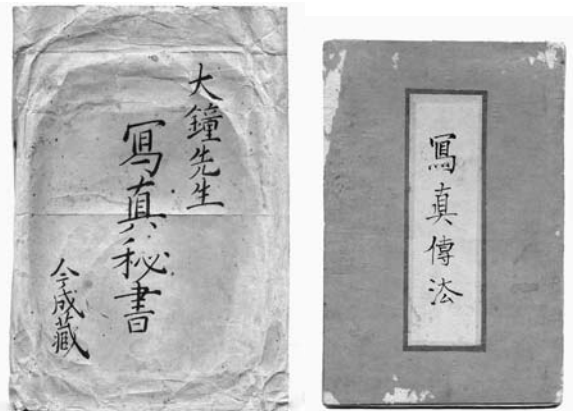 大鐘先生
寫真秘書
今成藏
寫真傳法